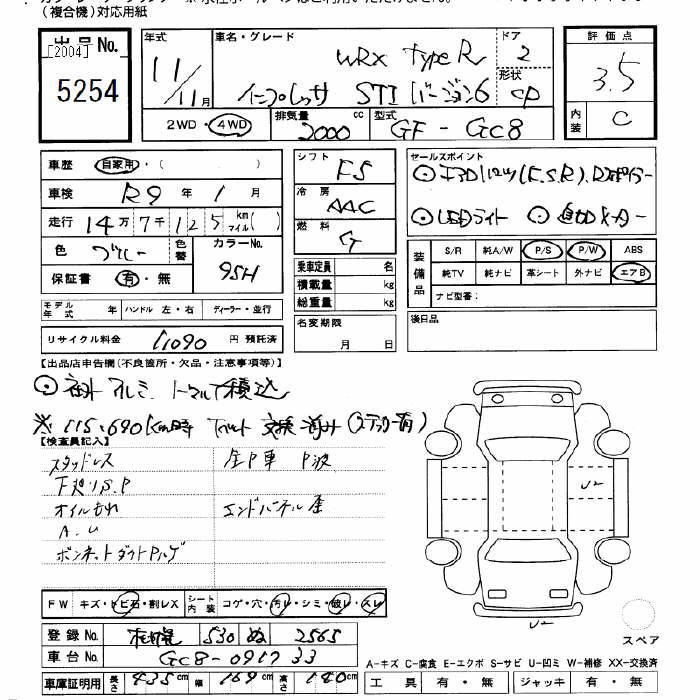 (複合機)対応用紙
出品No.
[2004]
5254
年式
11/11月
車名・グレード
WRX TypeR
インプレッサ STI バージョン6
ドア
2
形状
CP
評価点
3.5
内装
C
2WD・4WD
排気量
2000 cc
型式
GF - GC8
車歴 自家用・( )
車検 R9 年 1 月
走行 14万7千125 km マイル( )
色 ブルー 色替
カラーNo.
95H
保証書 有・無
シフト
F5
冷房
AAC
燃料
G
乗車定員 名
積載量 kg
総重量 kg
セールスポイント
LEDライト
装備品
S/R 純A/W P/S P/W ABS
純TV 純ナビ 革シート 外ナビ エアB
ナビ型番:
モデル年式 年 ハンドル 左・右 ディーラー・並行
リサイクル料金 11090 円 預託済
名変期限
月 日
後日品
【出品店申告欄(不良箇所・欠品・注意事項等)】
社外アルミ、ノーマル積込
※ 115,690km時 T/ベルト 交換済み(ステッカー有)
【検査員記入】
スタッドレス
全P車 P波
下廻りS.P
オイルもれ
エンドパネル歪
A.U
ボンネットダクトPハゲ
U2
U2
FW キズ・トビ石・割レX
シート内装 コゲ・穴・汚レ・シミ・破レ・スレ
登録No. 札幌 530 ぬ 2565
車台No. GC8-091733
車庫証明用 長さ 435cm 幅 169cm 高さ 140cm
スペア
A-キズ C-腐食 E-エクボ S-サビ U-凹ミ W-補修 XX-交換済
工具 有・無 ジャッキ 有・無